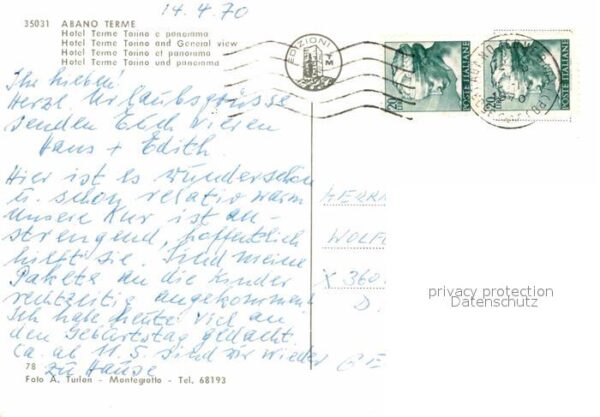 14.4.70
35031 ABANO TERME
Hotel Terme Torino e panorama
Hotel Terme Torino and General view
Hotel Terme Torino et panorama
Hotel Terme Torino und panorama
EDIZIONI A M
POSTE ITALIANE
POSTE ITALIANE
Ihr Lieben!
Herzl. Urlaubsgrüsse
senden Euch Vieren
Hans + Edith.
Hier ist es wunderschön
u. schon relativ warm
unsere Kur ist an-
strengend, hoffentlich
hilft sie. Sind meine
Pakete an die Kinder
rechtzeitig angekommen
Ich habe heute viel an
den Geburtstag gedacht
Ca. ab 11.5. sind wir wieder
zu Hause
HERRN
WOLF
X 360
D.
GE
privacy protection
Datenschutz
78
Foto A. Turlon - Montegrotto - Tel. 68193